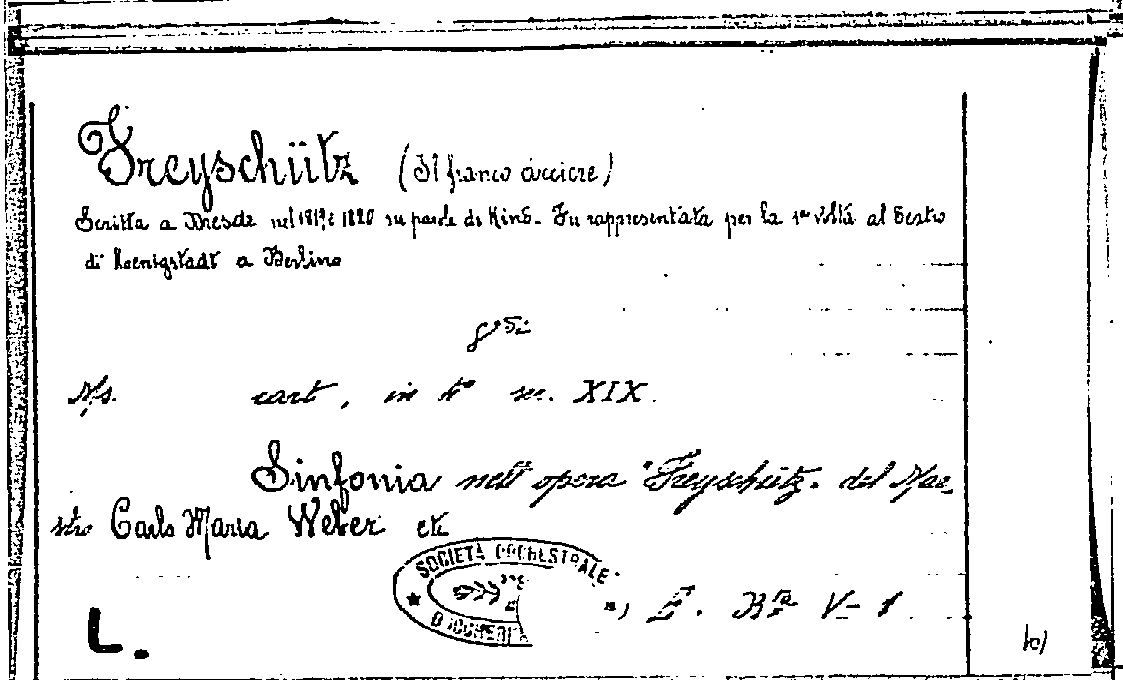 Freyschütz (Il franco acciere)
Scritta a Dresda nel 1819 e 1820 su parole di Kind. Fu rappresentata per la 1ª volta al Teatro
di Koenigstadt a Berlino
Ms. cart, in 4º sec. XIX.
Sinfonia nell' opera "Freyschütz" del Mae-
stro Carlo Maria Weber etc
SOCIETÀ ORCHESTRALE
BOCCHERINI
L.
E. V-1